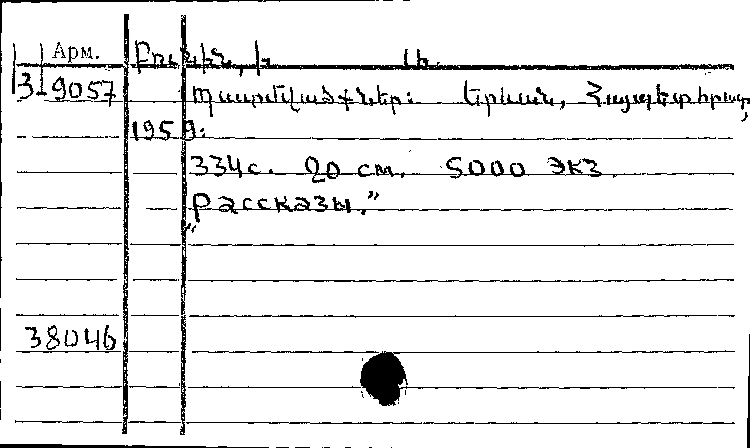 Арм. Բունին, Ի.
3 9057 Պատմվածքներ: Երևան, Հայպետհրատ,
1959:
334с. 20 см. 5000 экз.
"Рассказы."
38046